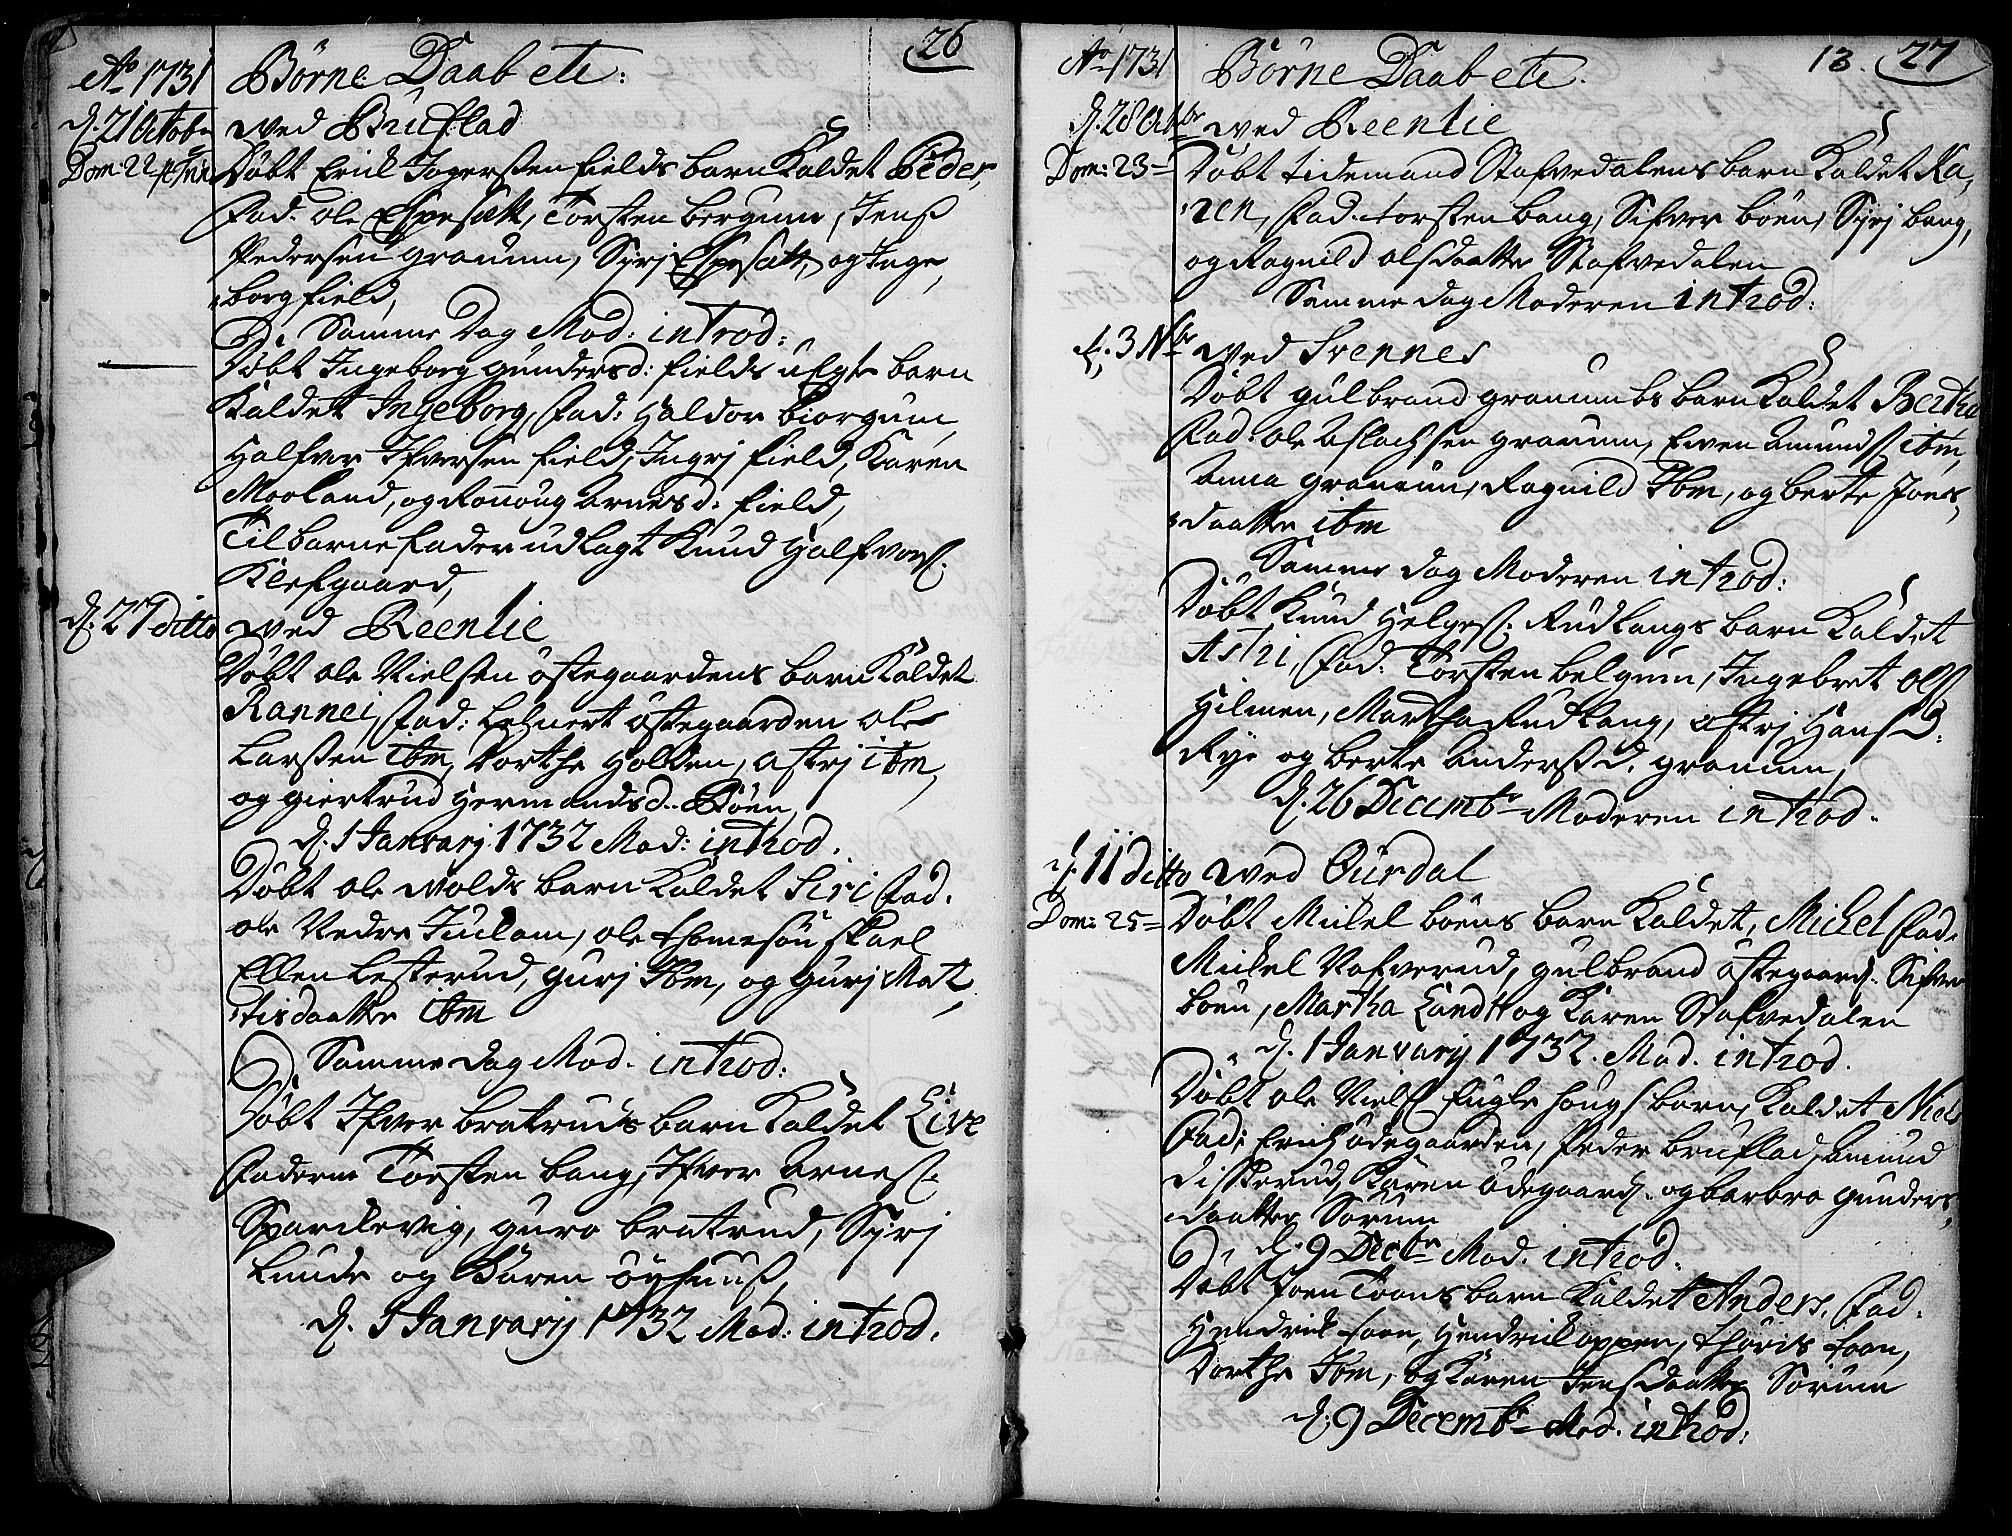 26
Ao 1731 Börne Daabete:
d. 21 Octobr wed Bruflad
Dom: 22 p. Trin. Döbt Erick Jogersen fields barn Kaldet Peder,
Fad: ole Espeset, Torsten bergum, Jens
Pedersen graunum, Syrj Espeset, og Inge,
borg field,
Samme Dag Mod: introd:
Döbt Ingeborg gundersd: fields uægte barn
Kaldet Ingeborg, Fad: Haldor biorgum,
Halfver Ifversen field, Ingrj field, Karen
Mooland, og Ronoug arnesd: field,
Til barnefader udlagt Knud Halfvors.
Klefgaard,
d. 27 ditto wed Reenlie
Döbt ole Nielsen östegaardens barn Kaldet
Rannei, Fad: Lehnert östegaarden ole
Larsten ibm, Dorthe Holden, astrj ibm,
og giertrud Hermandsd. Böen,
d. 1 Januarij 1732 Mod: introd.
Döbt ole wolds barn Kaldet Siri Fad.
ole Nedre Juulam, ole thomesön
Ellen Lesterud, gurj Ibm, og gurj Mat
tisdaatter ibm
Samme dag Mod. introd:
Döbt Ifver bratruds barn Kaldet Live
Faderne Torsten bang, Ifver arnes.
Spardlevig, guro bratrud, Syrj
Lunde og Karen öyhuus,
d. 1 Januarij 1732 Mod: introd.
13. 27
Ao 1731 Börne Daabete.
d. 28 Octbr wed Reenlie
Dom: 23 Döbt tidemand Stafvedalens barn Kaldet Ka,
ren, Fad. torsten bang, Sifver böen, Syrj bang,
og Ragnild olsdaatter Stafvedalen
Samme dag Moderen introd:
d. 3 Nbr wed Svennes
Döbt gulbrand graunums barn Kaldet Bertha
Fad: ole aslachsen graunum, Ewen amunds. ibm,
Anna graunum, Ragnild Ibm, og berte Joens,
daatter ibm
Samme dag Moderen introd:
Döbt Knud Helges. Rudlangs barn Kaldet
Astri, Fad: Torsten belgum, Ingebret ols.
Hilmen, Martha Rudlang, astrj Hansd.
Rye og berte andersd. graunum,
d. 26 Decembr Moderen introd.
d. 11 ditto wed Ourdal
Dom: 25 Döbt Mickel böens barn Kaldet, Mickel Fad.
Mickel Nafverud, gulbrand östegaard. Sifver
böen, Martha Lundt og Karen Stafvedalen
d. 1 Januarij 1732. Mod. introd.
Döbt ole Niels. Fuglehougs barn, Kaldet Niels
Fad: Erich ödegaarden, Peder bruflad, amund
Disterud, Karen ödegaard. og barbro gunders,
daatter Sörum
d. 9 Decbr Mod. introd.
Döbt Joen Toens barn Kaldet Anders, Fad.
Hendrick toen, Hendrick oppen, thöris toen,
Dorthe Ibm, og Karen Jensdaatter Sörum
d. 9 Decembr Mod. introd: